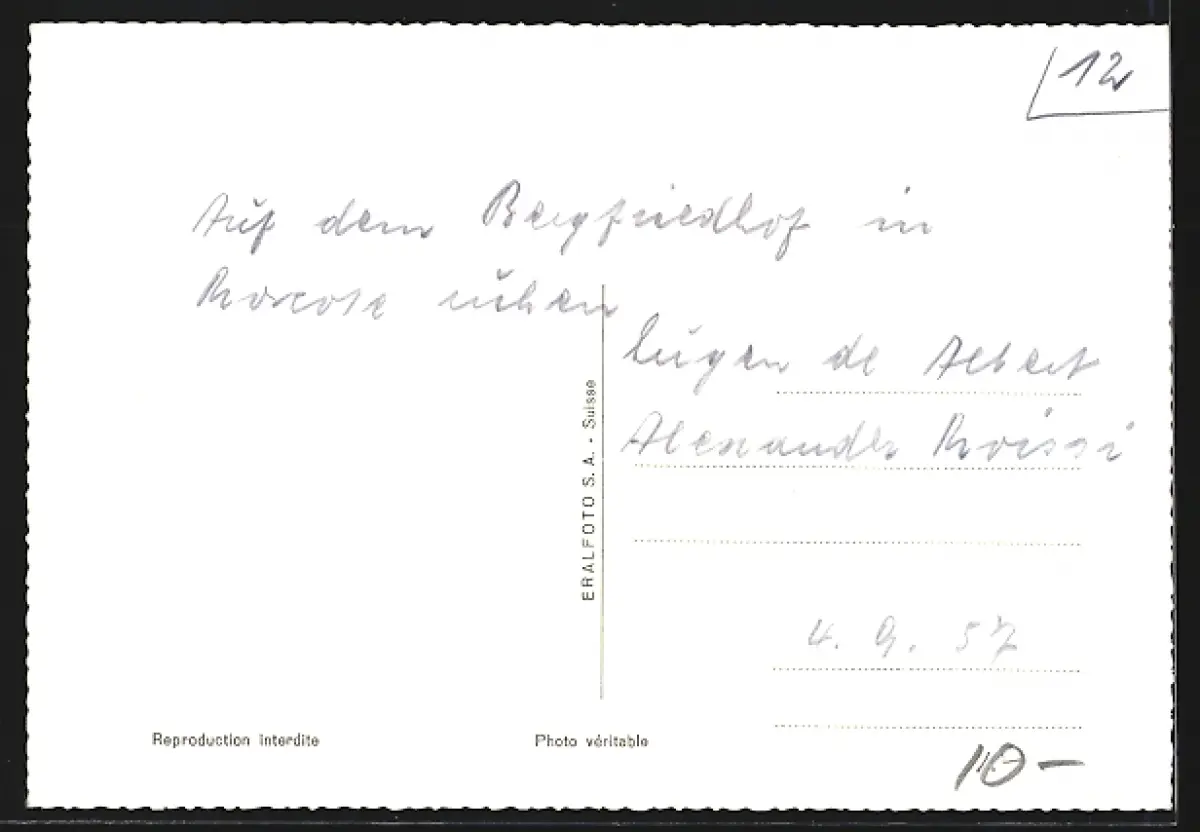 12
Auf dem Bergfriedhof in
Morcote ruhen
Eugen de Albert
Alexander Moissi
ERALFOTO S. A. - Suisse
4. 9. 57
Reproduction interdite
Photo véritable
10-